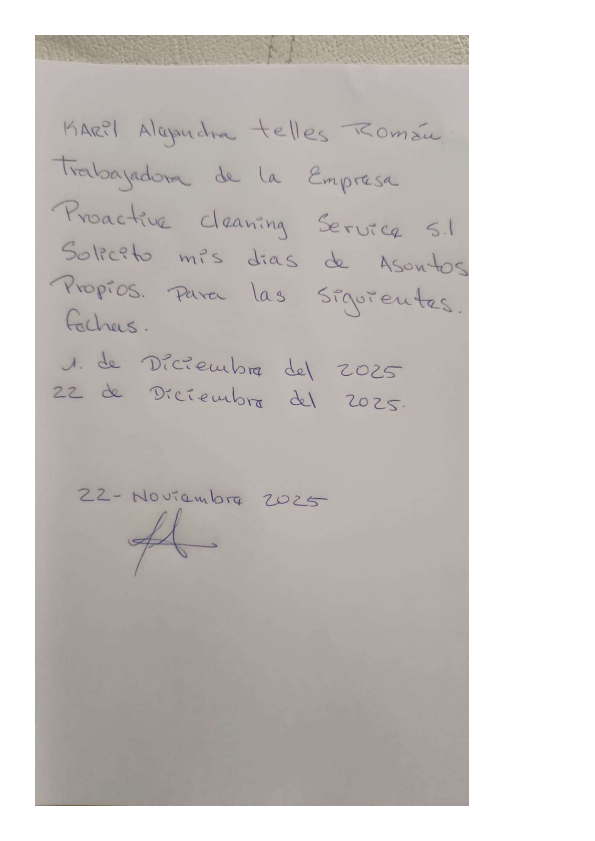 KARil Alejandra telles Román
Trabajadora de la Empresa
Proactive cleaning Service s.l
Solicito mis dias de Asuntos
Propios. Para las Siguientes.
fechas.
1. de Diciembre del 2025
22 de Diciembre del 2025.
22-Noviembre 2025